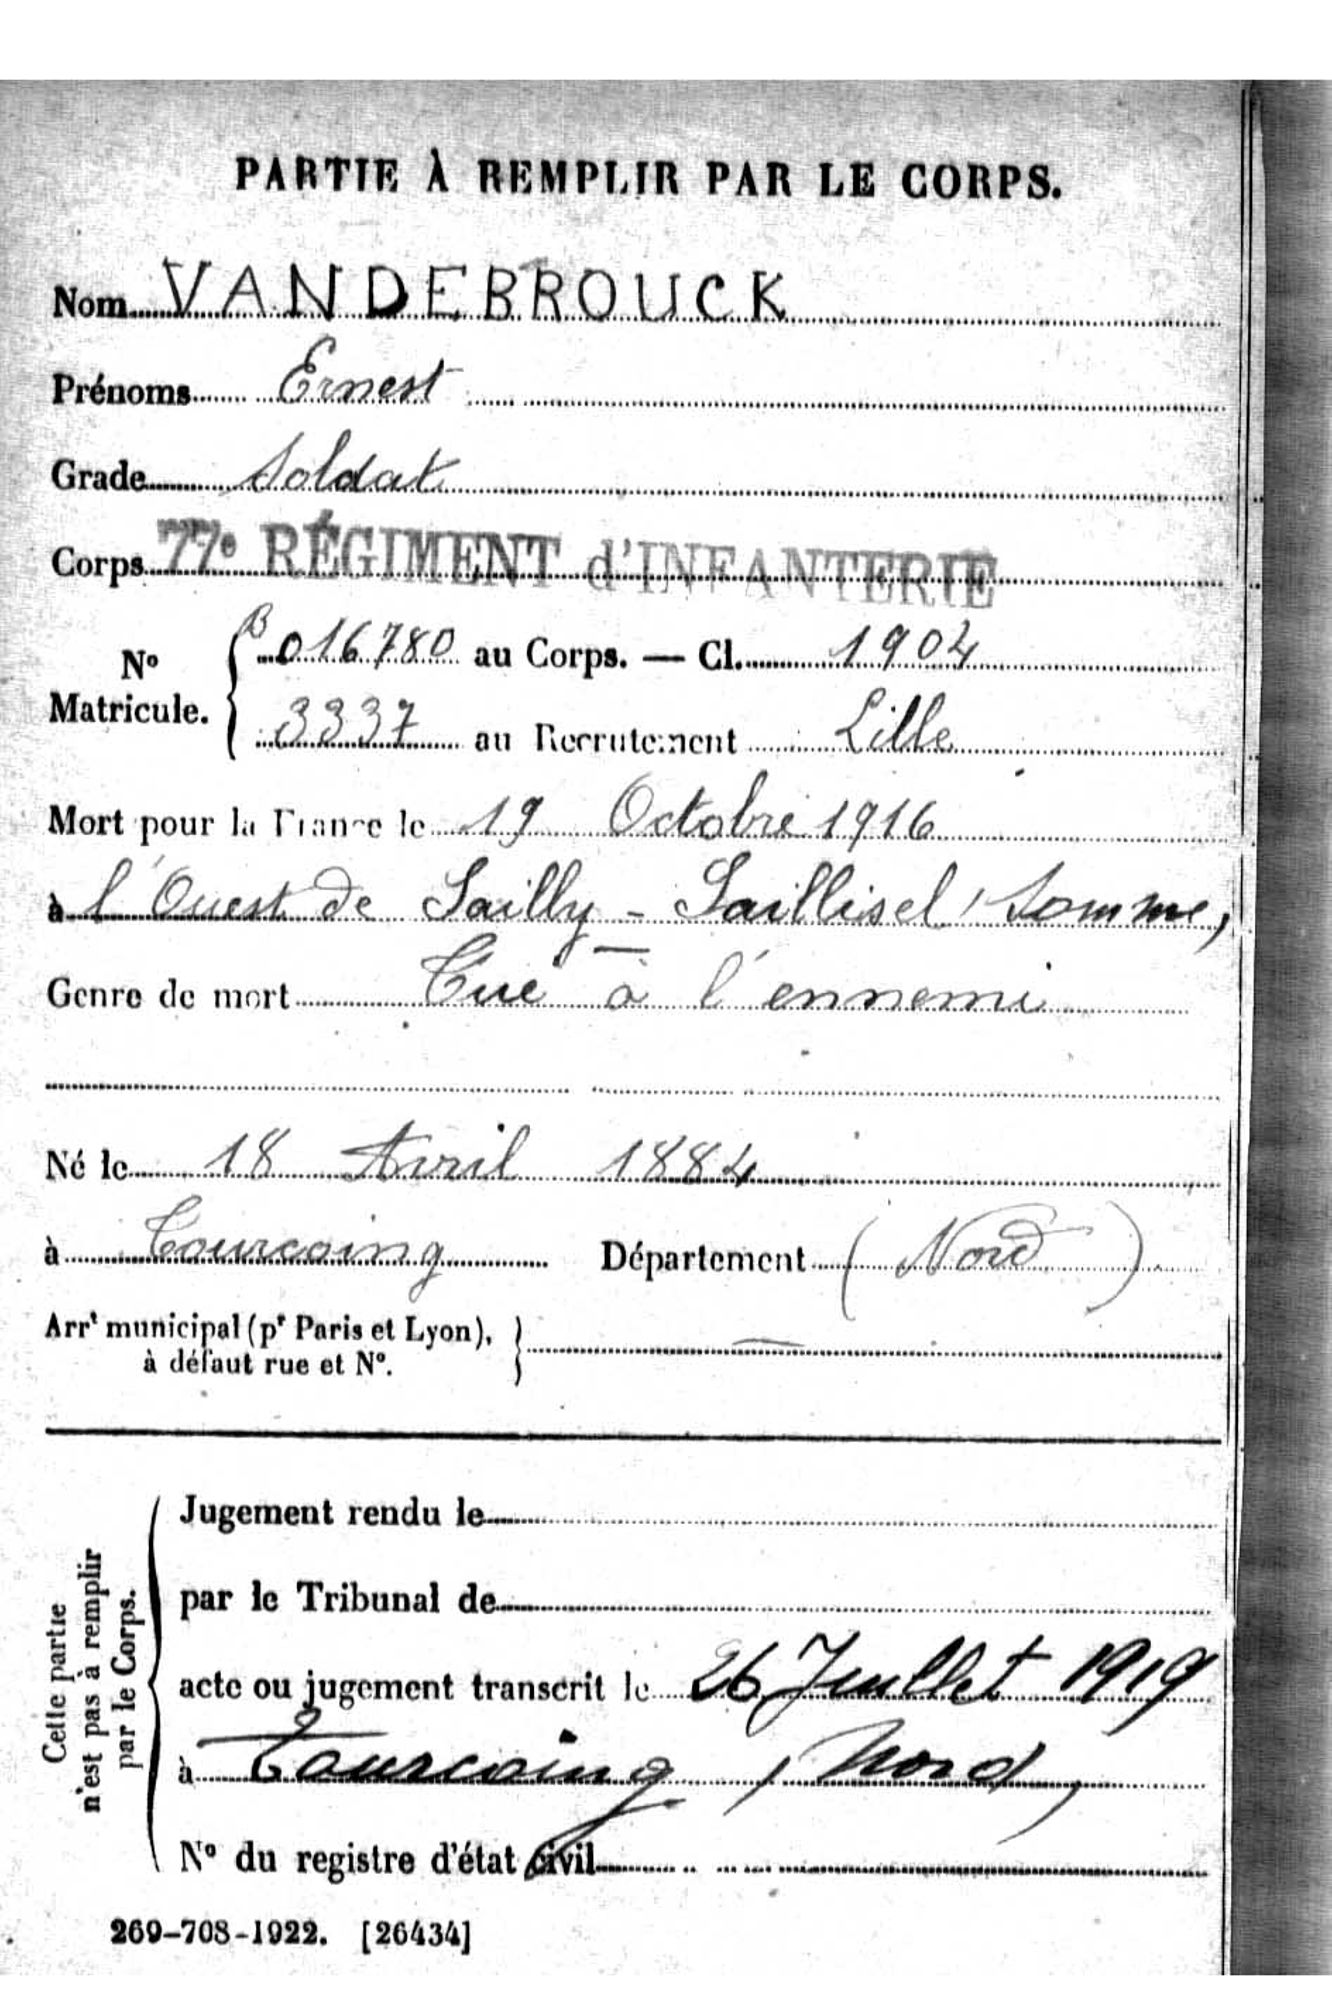 PARTIE À REMPLIR PAR LE CORPS.
Nom VANDEBROUCK
Prénoms Ernest
Grade Soldat
Corps 77e RÉGIMENT d'INFANTERIE
No Matricule. { B 016780 au Corps. — Cl. 1904
3337 au Recrutement Lille
Mort pour la France le 19 Octobre 1916
à l'Ouest de Sailly-Saillisel, Somme,
Genre de mort Tué à l'ennemi
Né le 18 Avril 1884
à Tourcoing Département (Nord)
Arrt municipal (pr Paris et Lyon), }
à défaut rue et No. —
Cette partie
n'est pas à remplir
par le Corps.
Jugement rendu le
par le Tribunal de
acte ou jugement transcrit le 26 Juillet 1919
à Tourcoing, Nord,
No du registre d'état civil
269-708-1922. [26434]